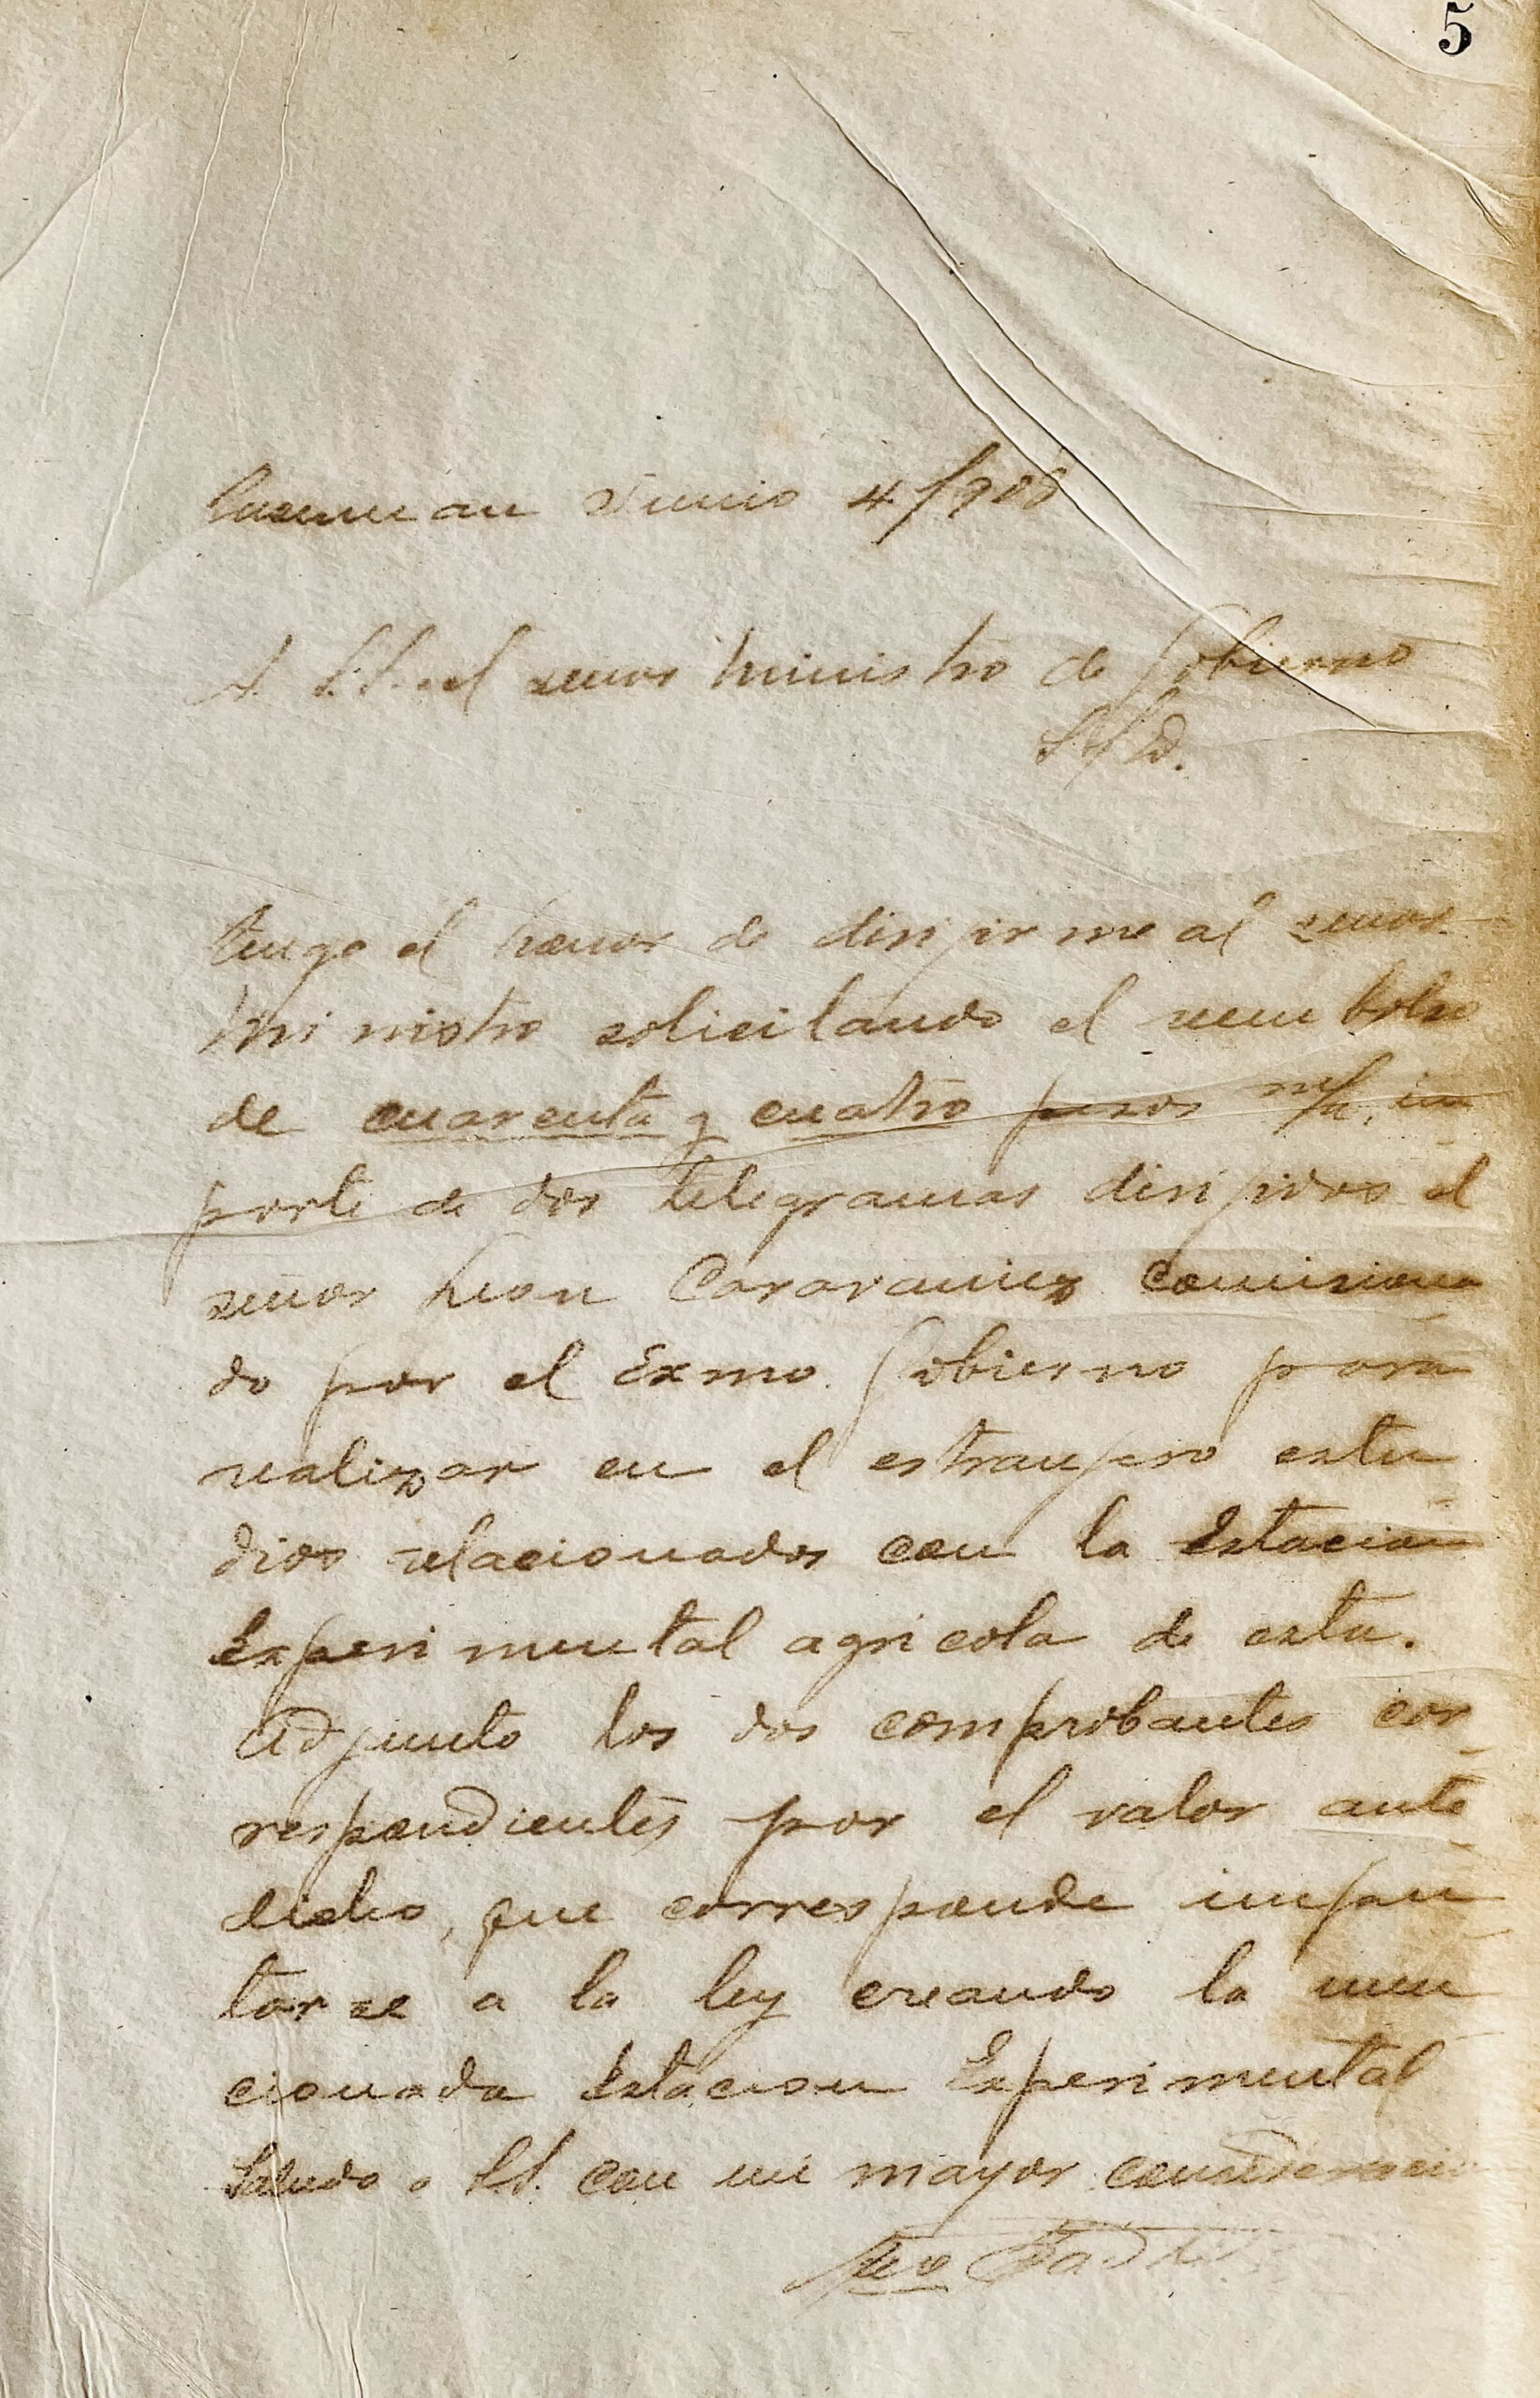 5
Tucuman Junio 4/908
A S.S. el señor Ministro de Gobierno
S/D.
Tengo el honor de dirijirme al señor
Ministro solicitando el reembolso
de cuarenta y cuatro pesos m/n, im
porte de dos telegramas dirijidos al
señor Juan comisiona
do por el Exmo. Gobierno para
realizar en el estranjero estu
dios relacionados con la Estacion
Experimental agricola de esta.
Adjunto los dos comprobantes cor
respondientes por el valor ante
dicho, que corresponde impu
tarse a la ley creando la men
cionada Estacion Experimental
Saludo a S.S. con mi mayor consideracion